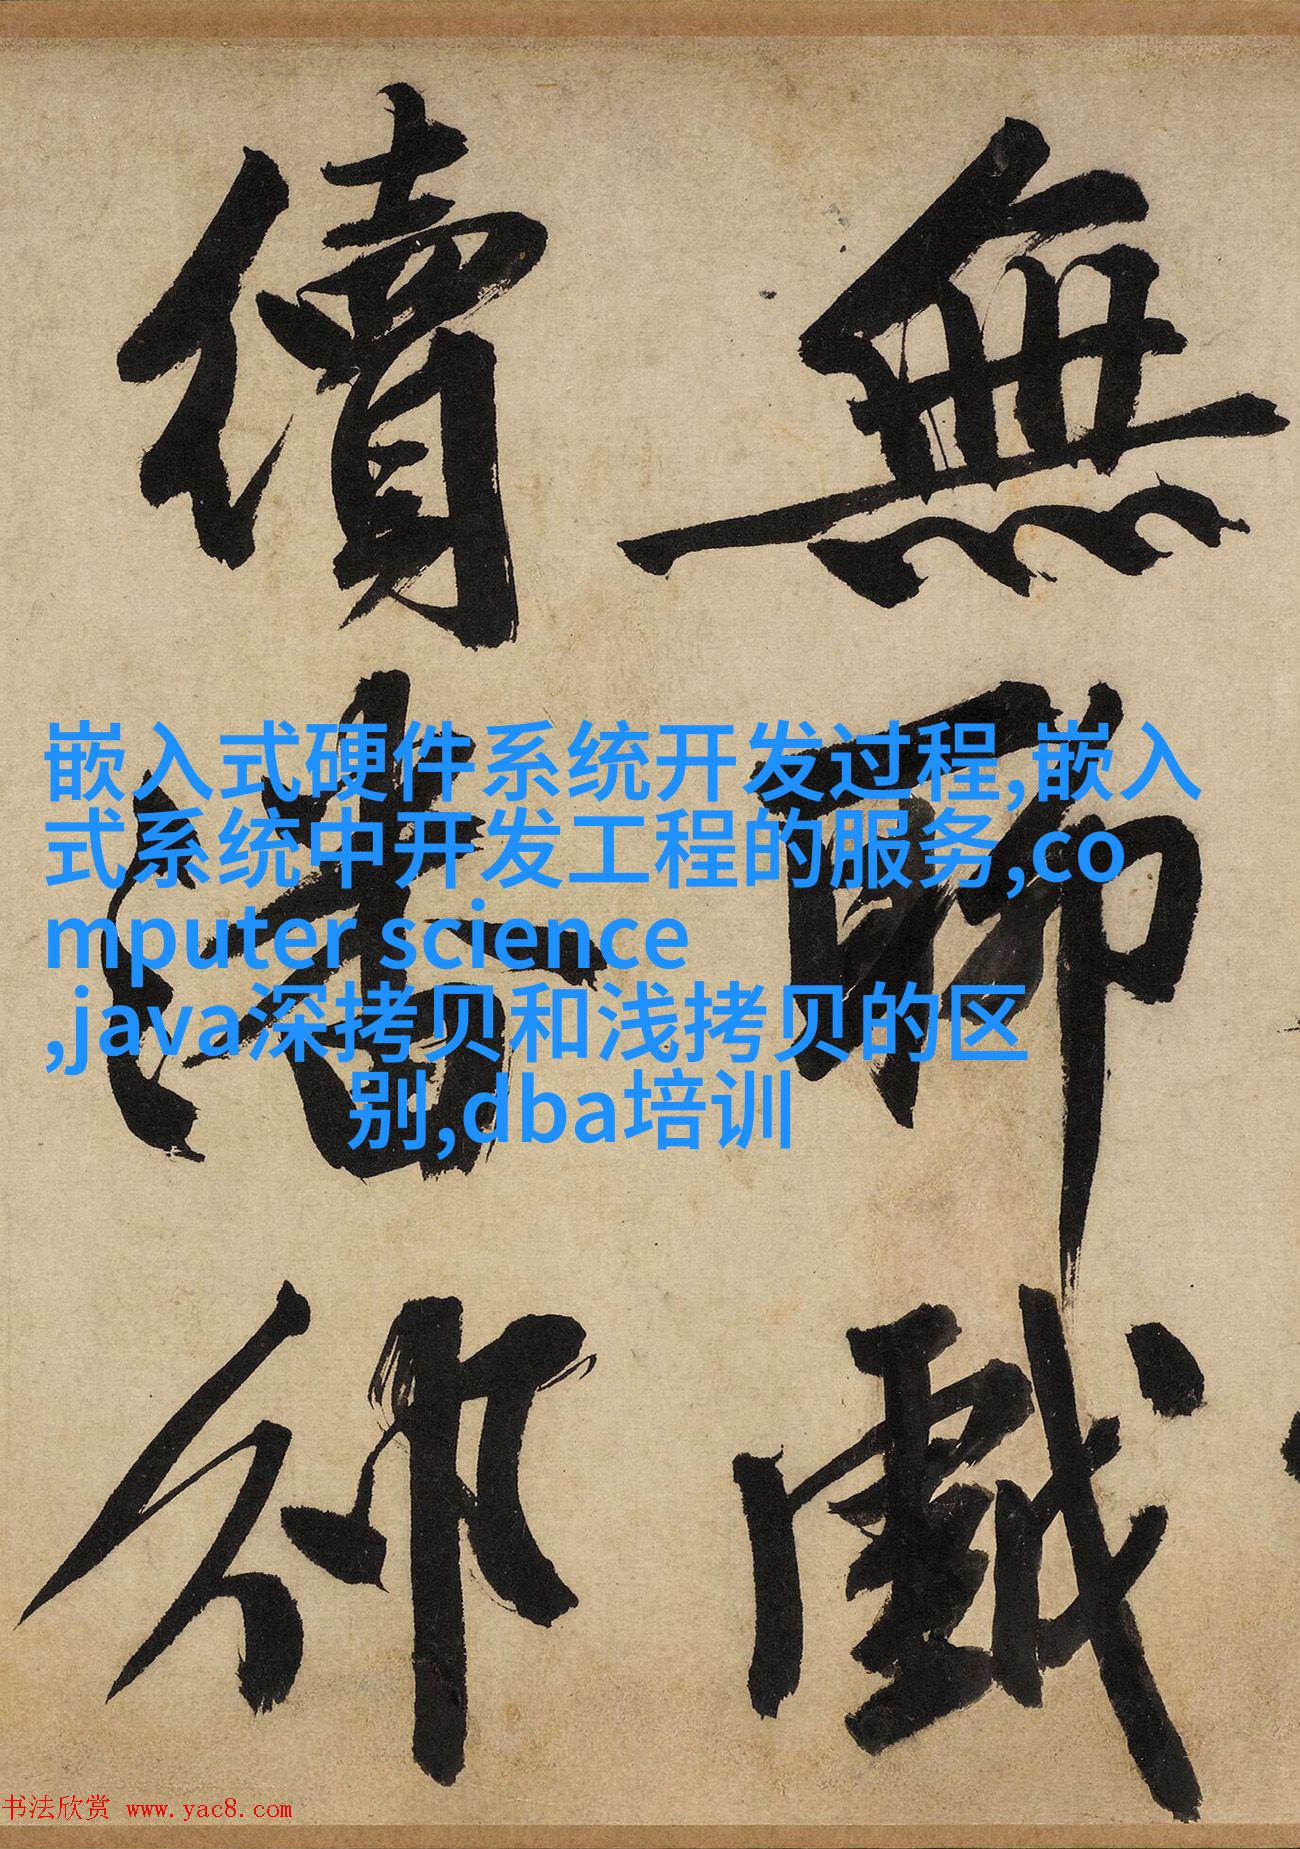 無聊戲
續潘邠
嵌入式硬件系统开发过程,嵌入
式系统中开发工程的服务,co
mputer science
,java深拷贝和浅拷贝的区
别,dba培训
书法欣赏 www.yac8.com